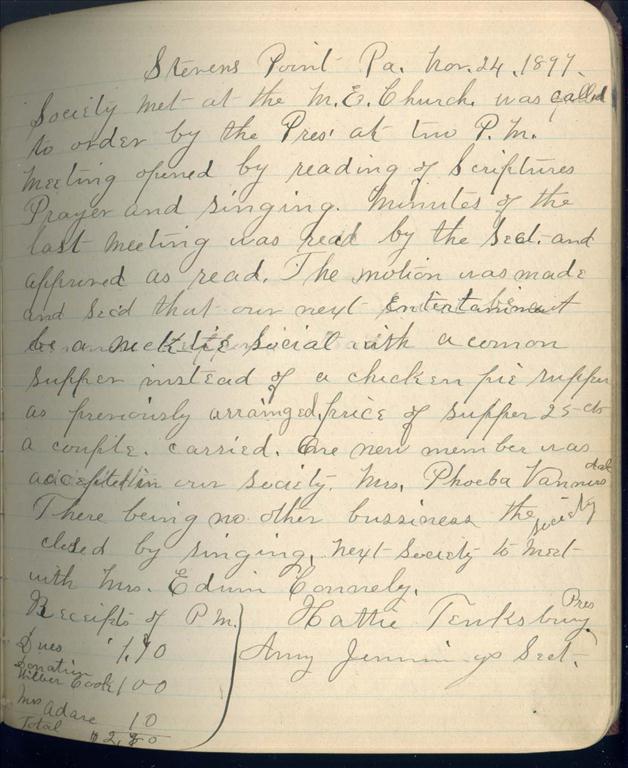 Stevens Point Pa. Nov. 24, 1897.
Society met at the M.E. Church. was called
to order by the Pres. at two P.M.
Meeting opened by reading of Scriptures
Prayer and singing. Minutes of the
last meeting was read by the Sect. and
approved as read. The motion was made
and Sec'd that our next entertainment
be a neck tie social with a comon
supper instead of a chicken pie supper
as previously arrainged, price of supper 25 cts
a couple. carried. One new member was
accepted in our society. Mrs. Phoeba Van
There being no other bussiness the society
closed by singing, next society to meet
with Mrs. Edwin Connely.
Receipts of P.M. Hattie Tewksbury Pres
Dues 1.70 Amy Jennings Sect.
Donation
Wilber Cook 1 00
Mrs Adare 10
Total $2.80